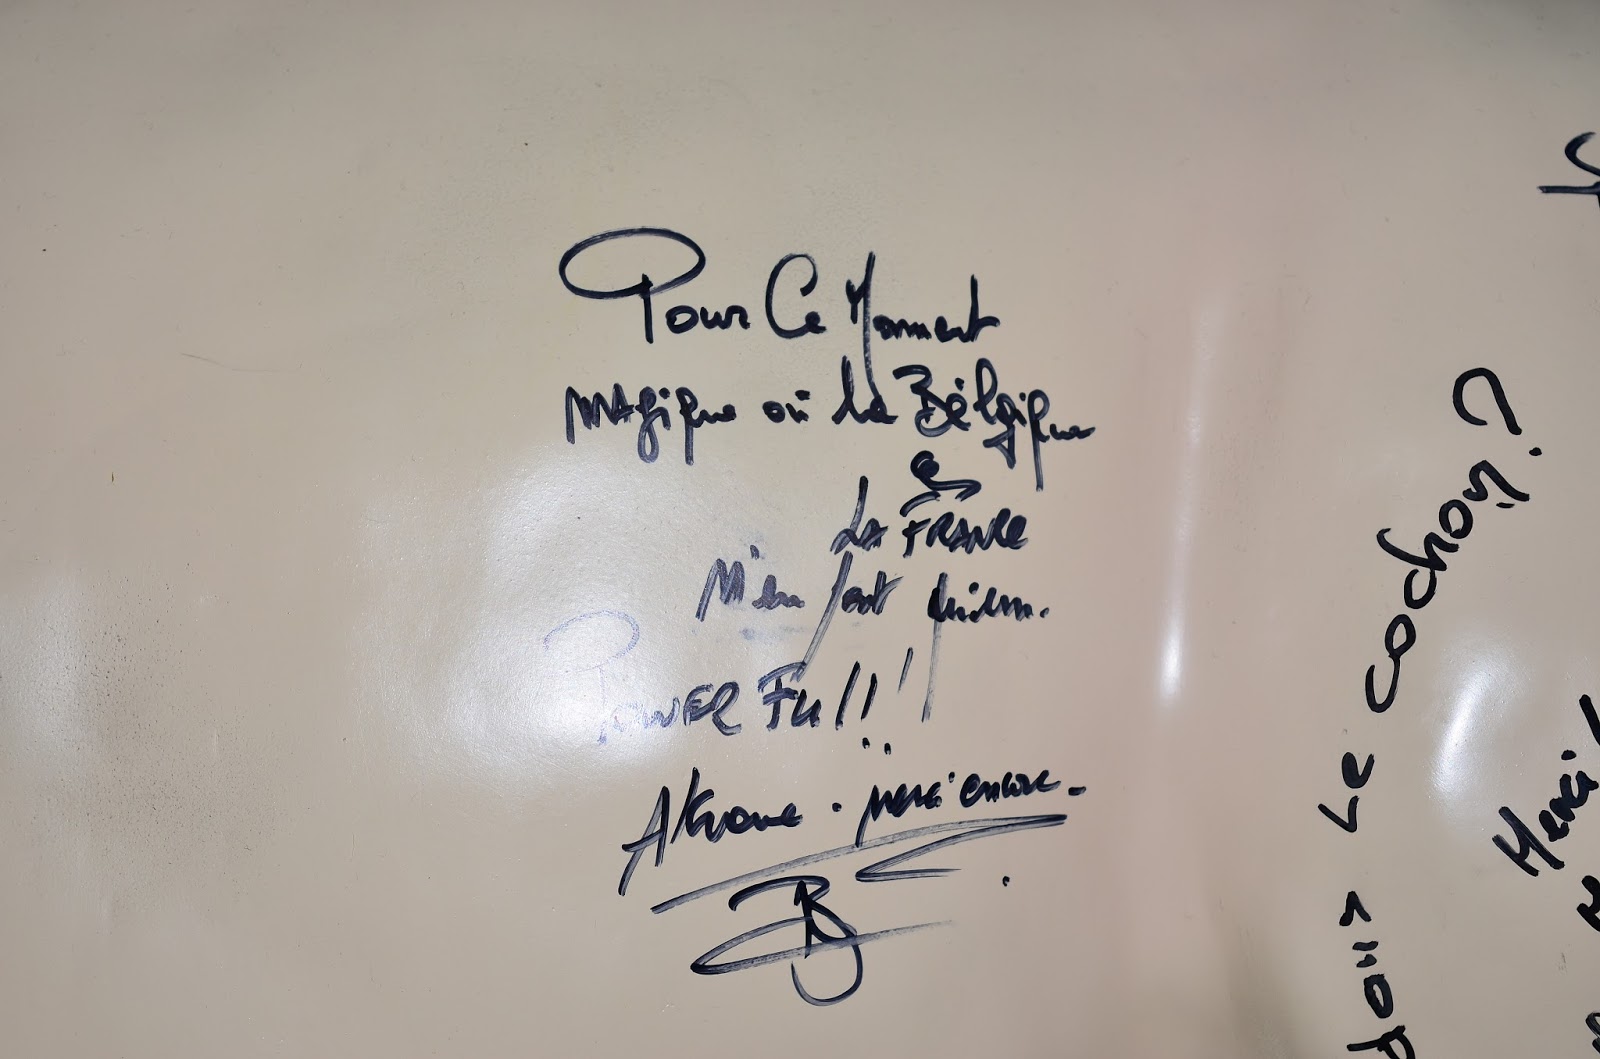 Pour Ce Moment
magique où la Bélgique
et
LA FRANCE
M'en font
POWER Full!!
merci encore.
LE cochon?
Merci